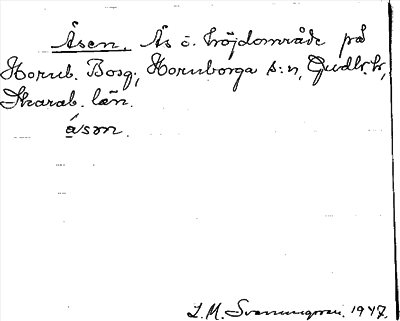 Åsen. Ås o. höjdområde på
Hornb. Bosg., Hornborga s:n, Gudh. hd,
Skarab. län.
åsən.
L. M. Svanungsson. 1947.